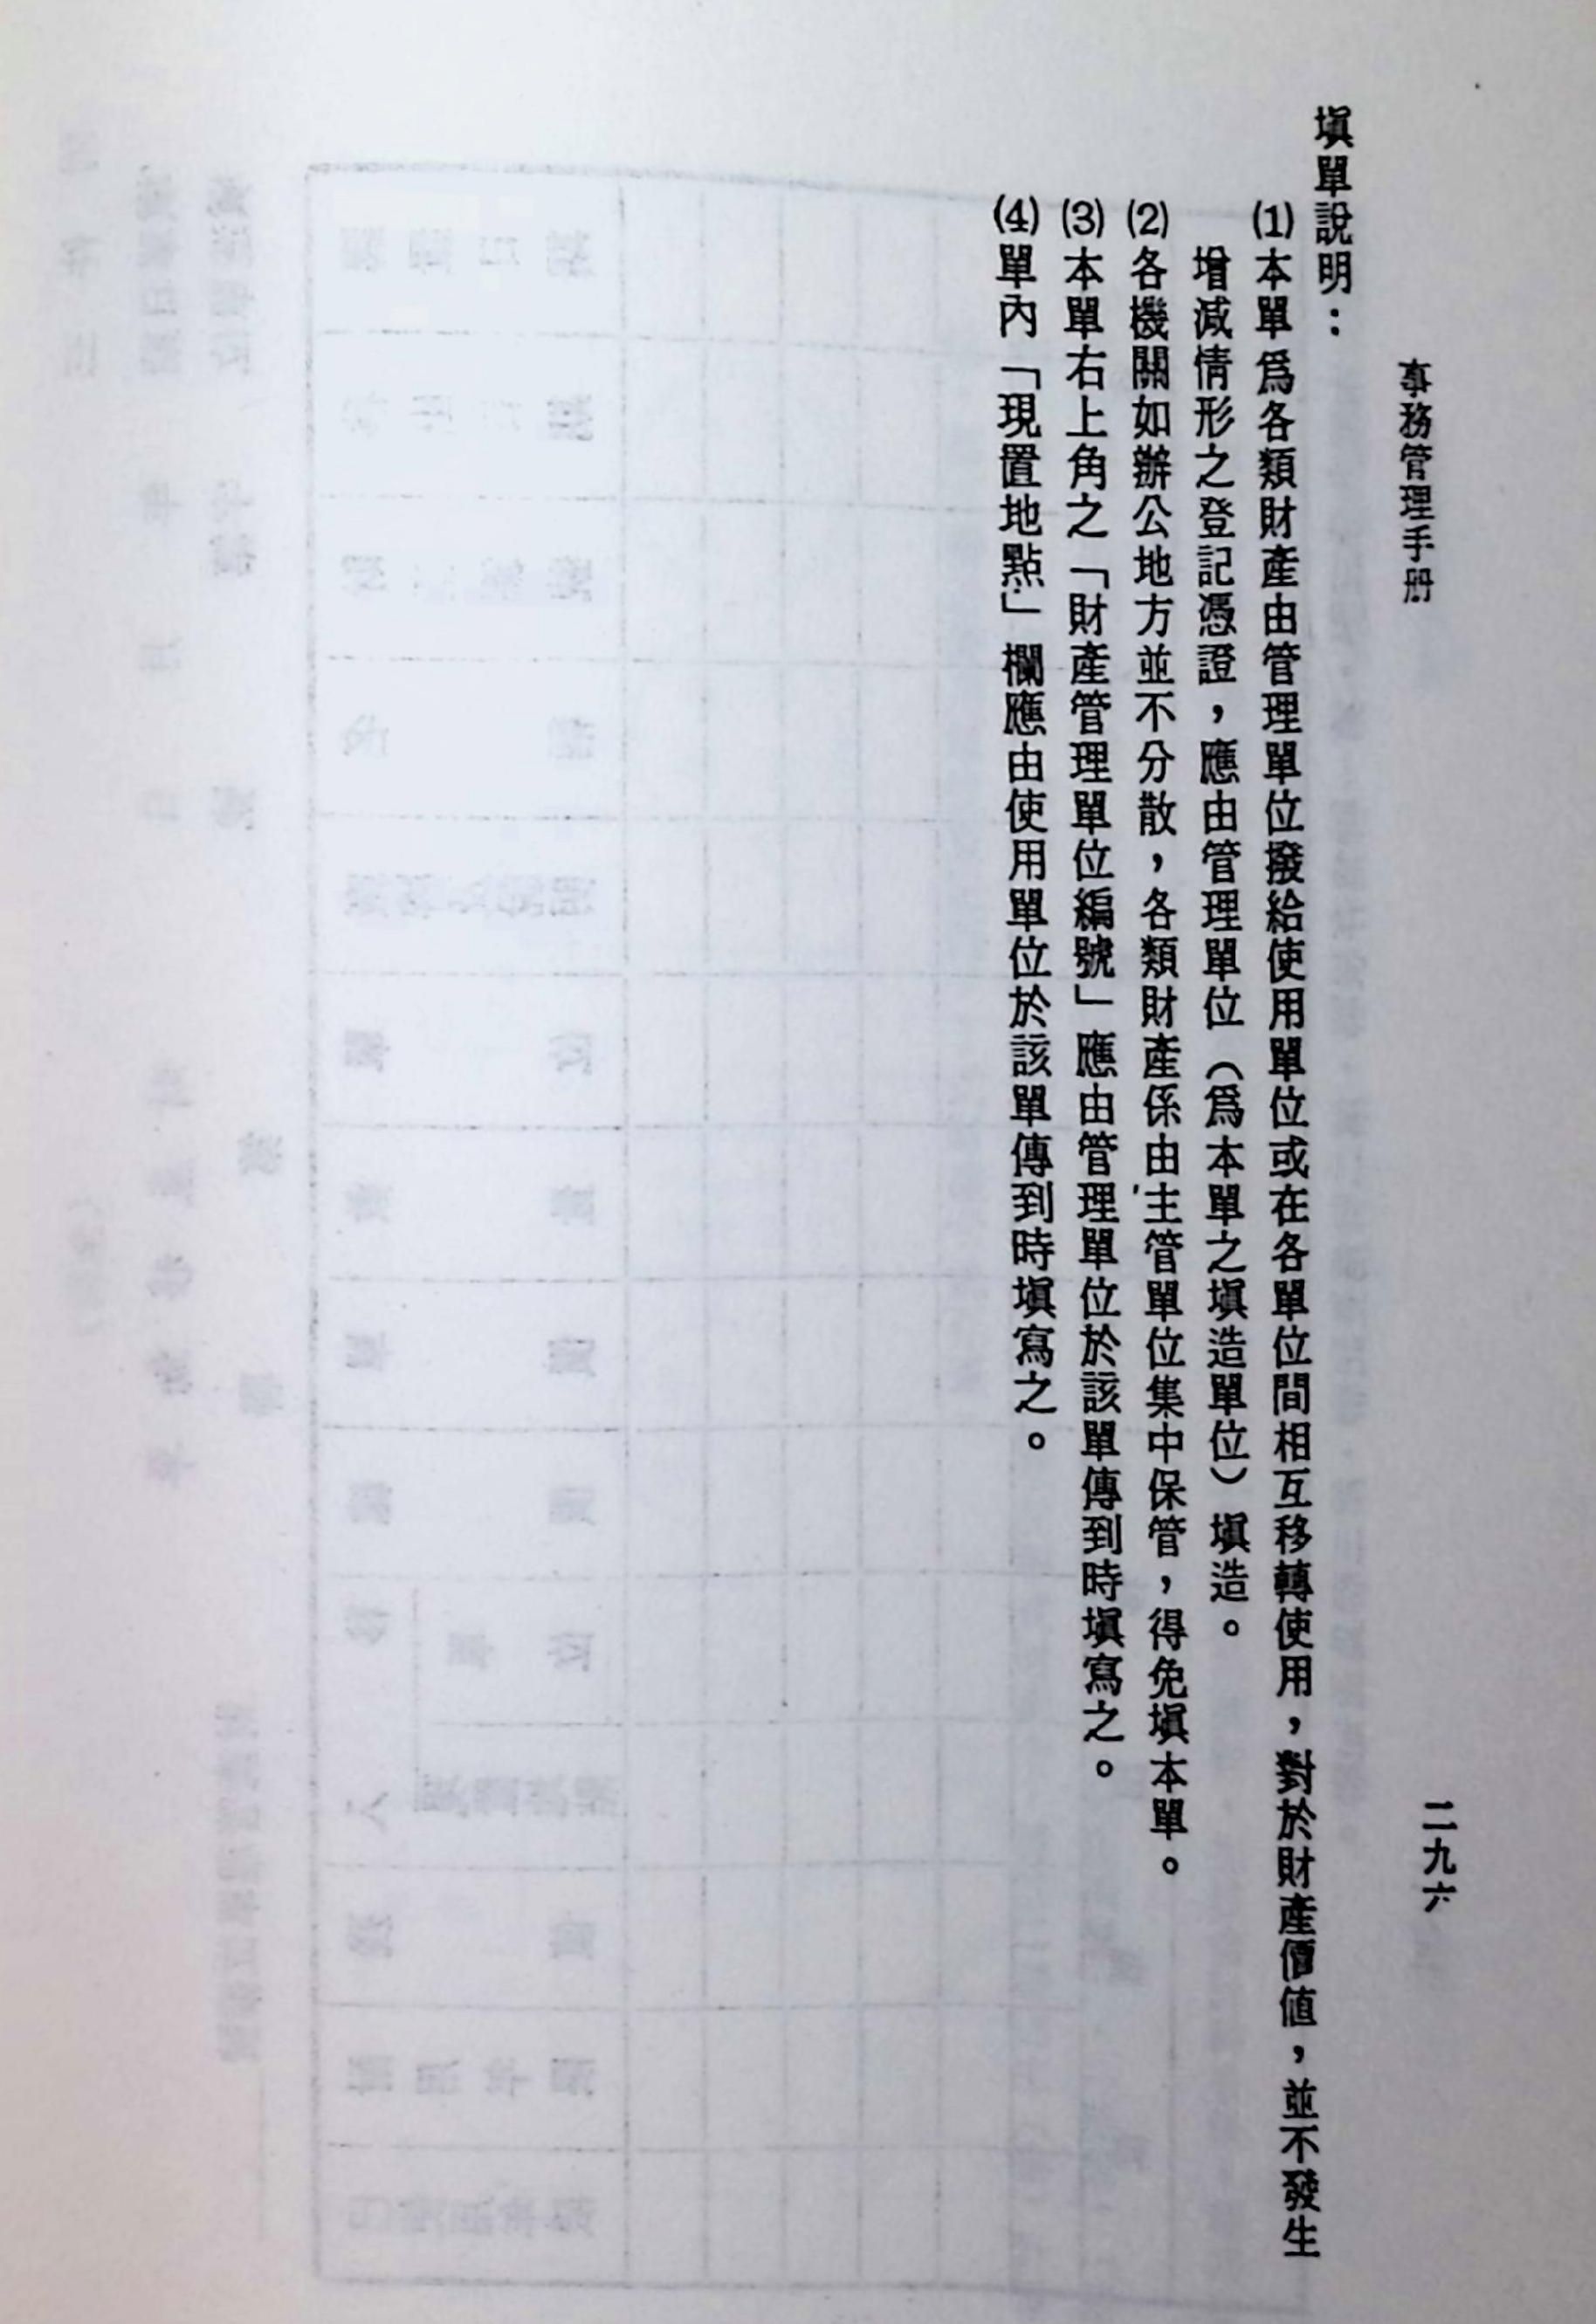 事務管理手册
二九六
填單說明：
⑴本單爲各類財產由管理單位撥給使用單位或在各單位間相互移轉使用，對於財產價值，並不發生
增減情形之登記憑證，應由管理單位（爲本單之填造單位）填造。
⑵各機關如辦公地方並不分散，各類財產係由主管單位集中保管，得免填本單。
⑶本單右上角之「財產管理單位編號」應由管理單位於該單傳到時填寫之。
⑷單內「現置地點」欄應由使用單位於該單傳到時填寫之。